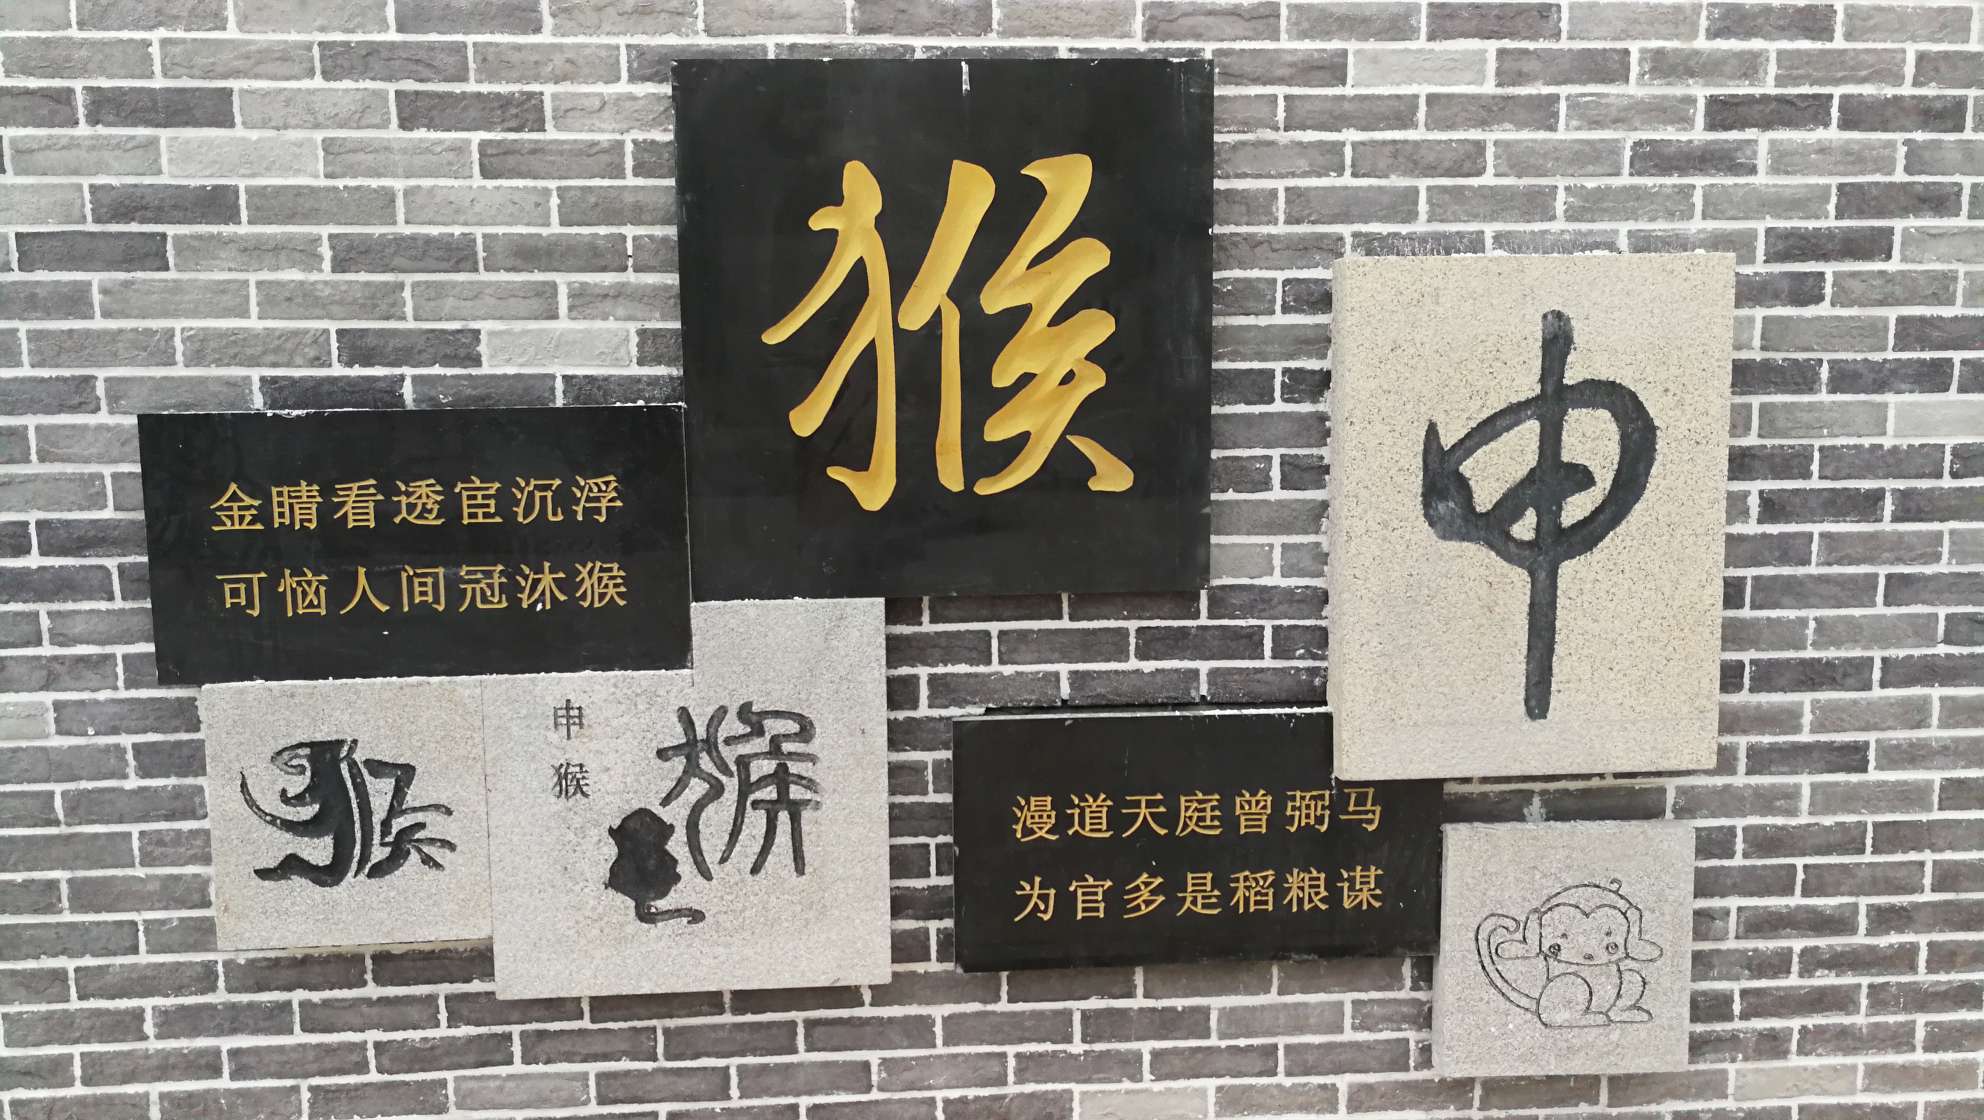 猴
申
金睛看透宦沉浮
可恼人间冠沐猴
猴
申猴
猴
漫道天庭曾弼马
为官多是稻粮谋